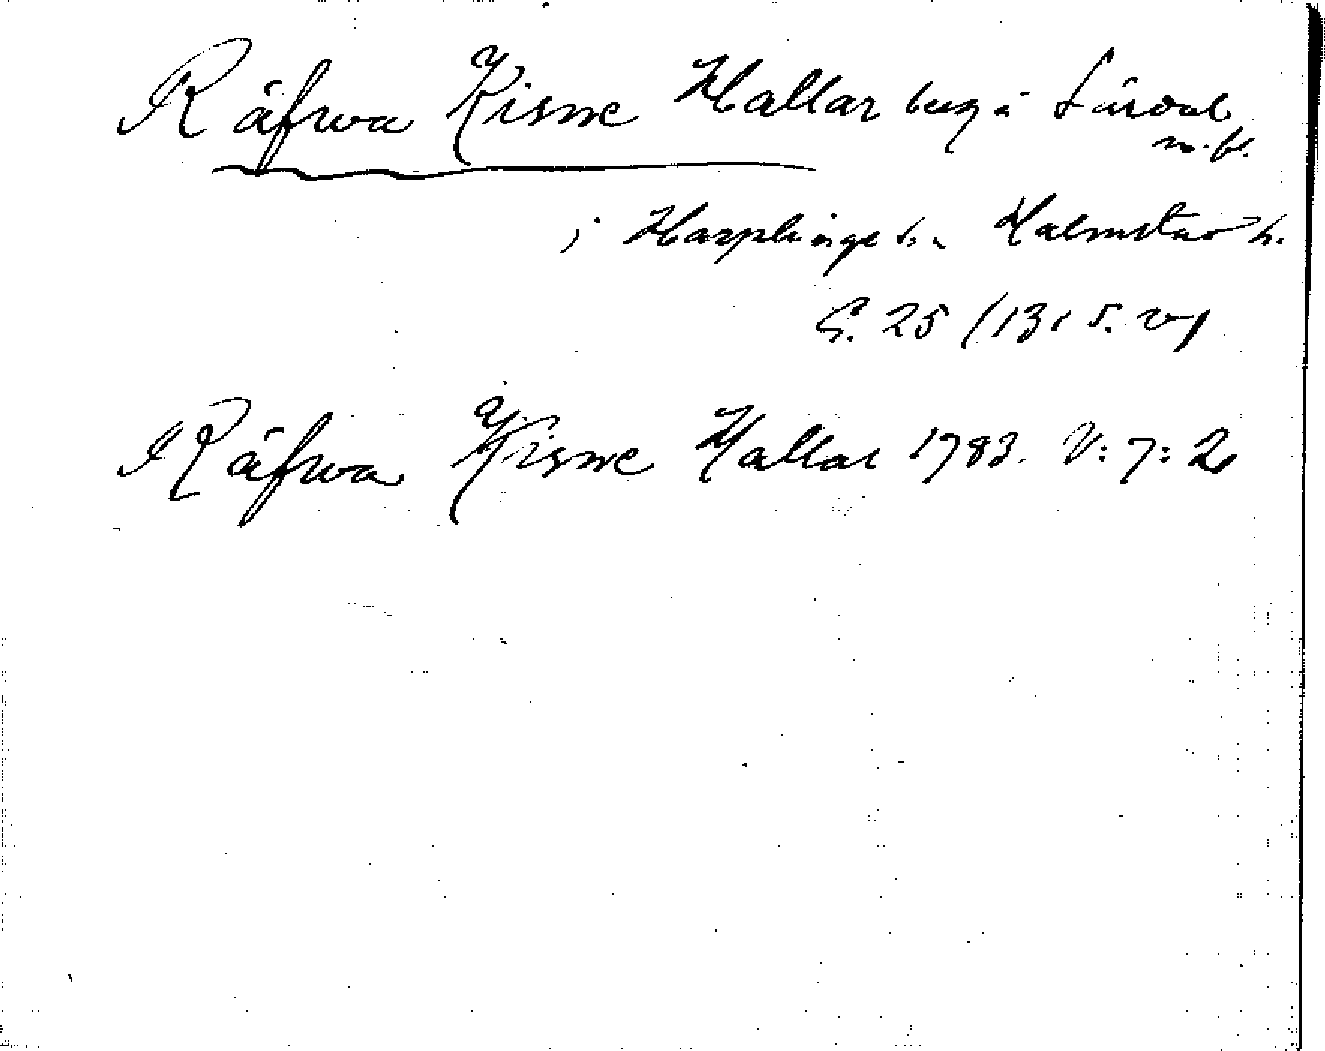 Räfwa Kisne Hallar beg å Särdal
m.fl.
i Harplinge s. Halmstad h.
G. 25 (1315. v)
Räfwa Kisne Hallar 1783. V: 7: 2